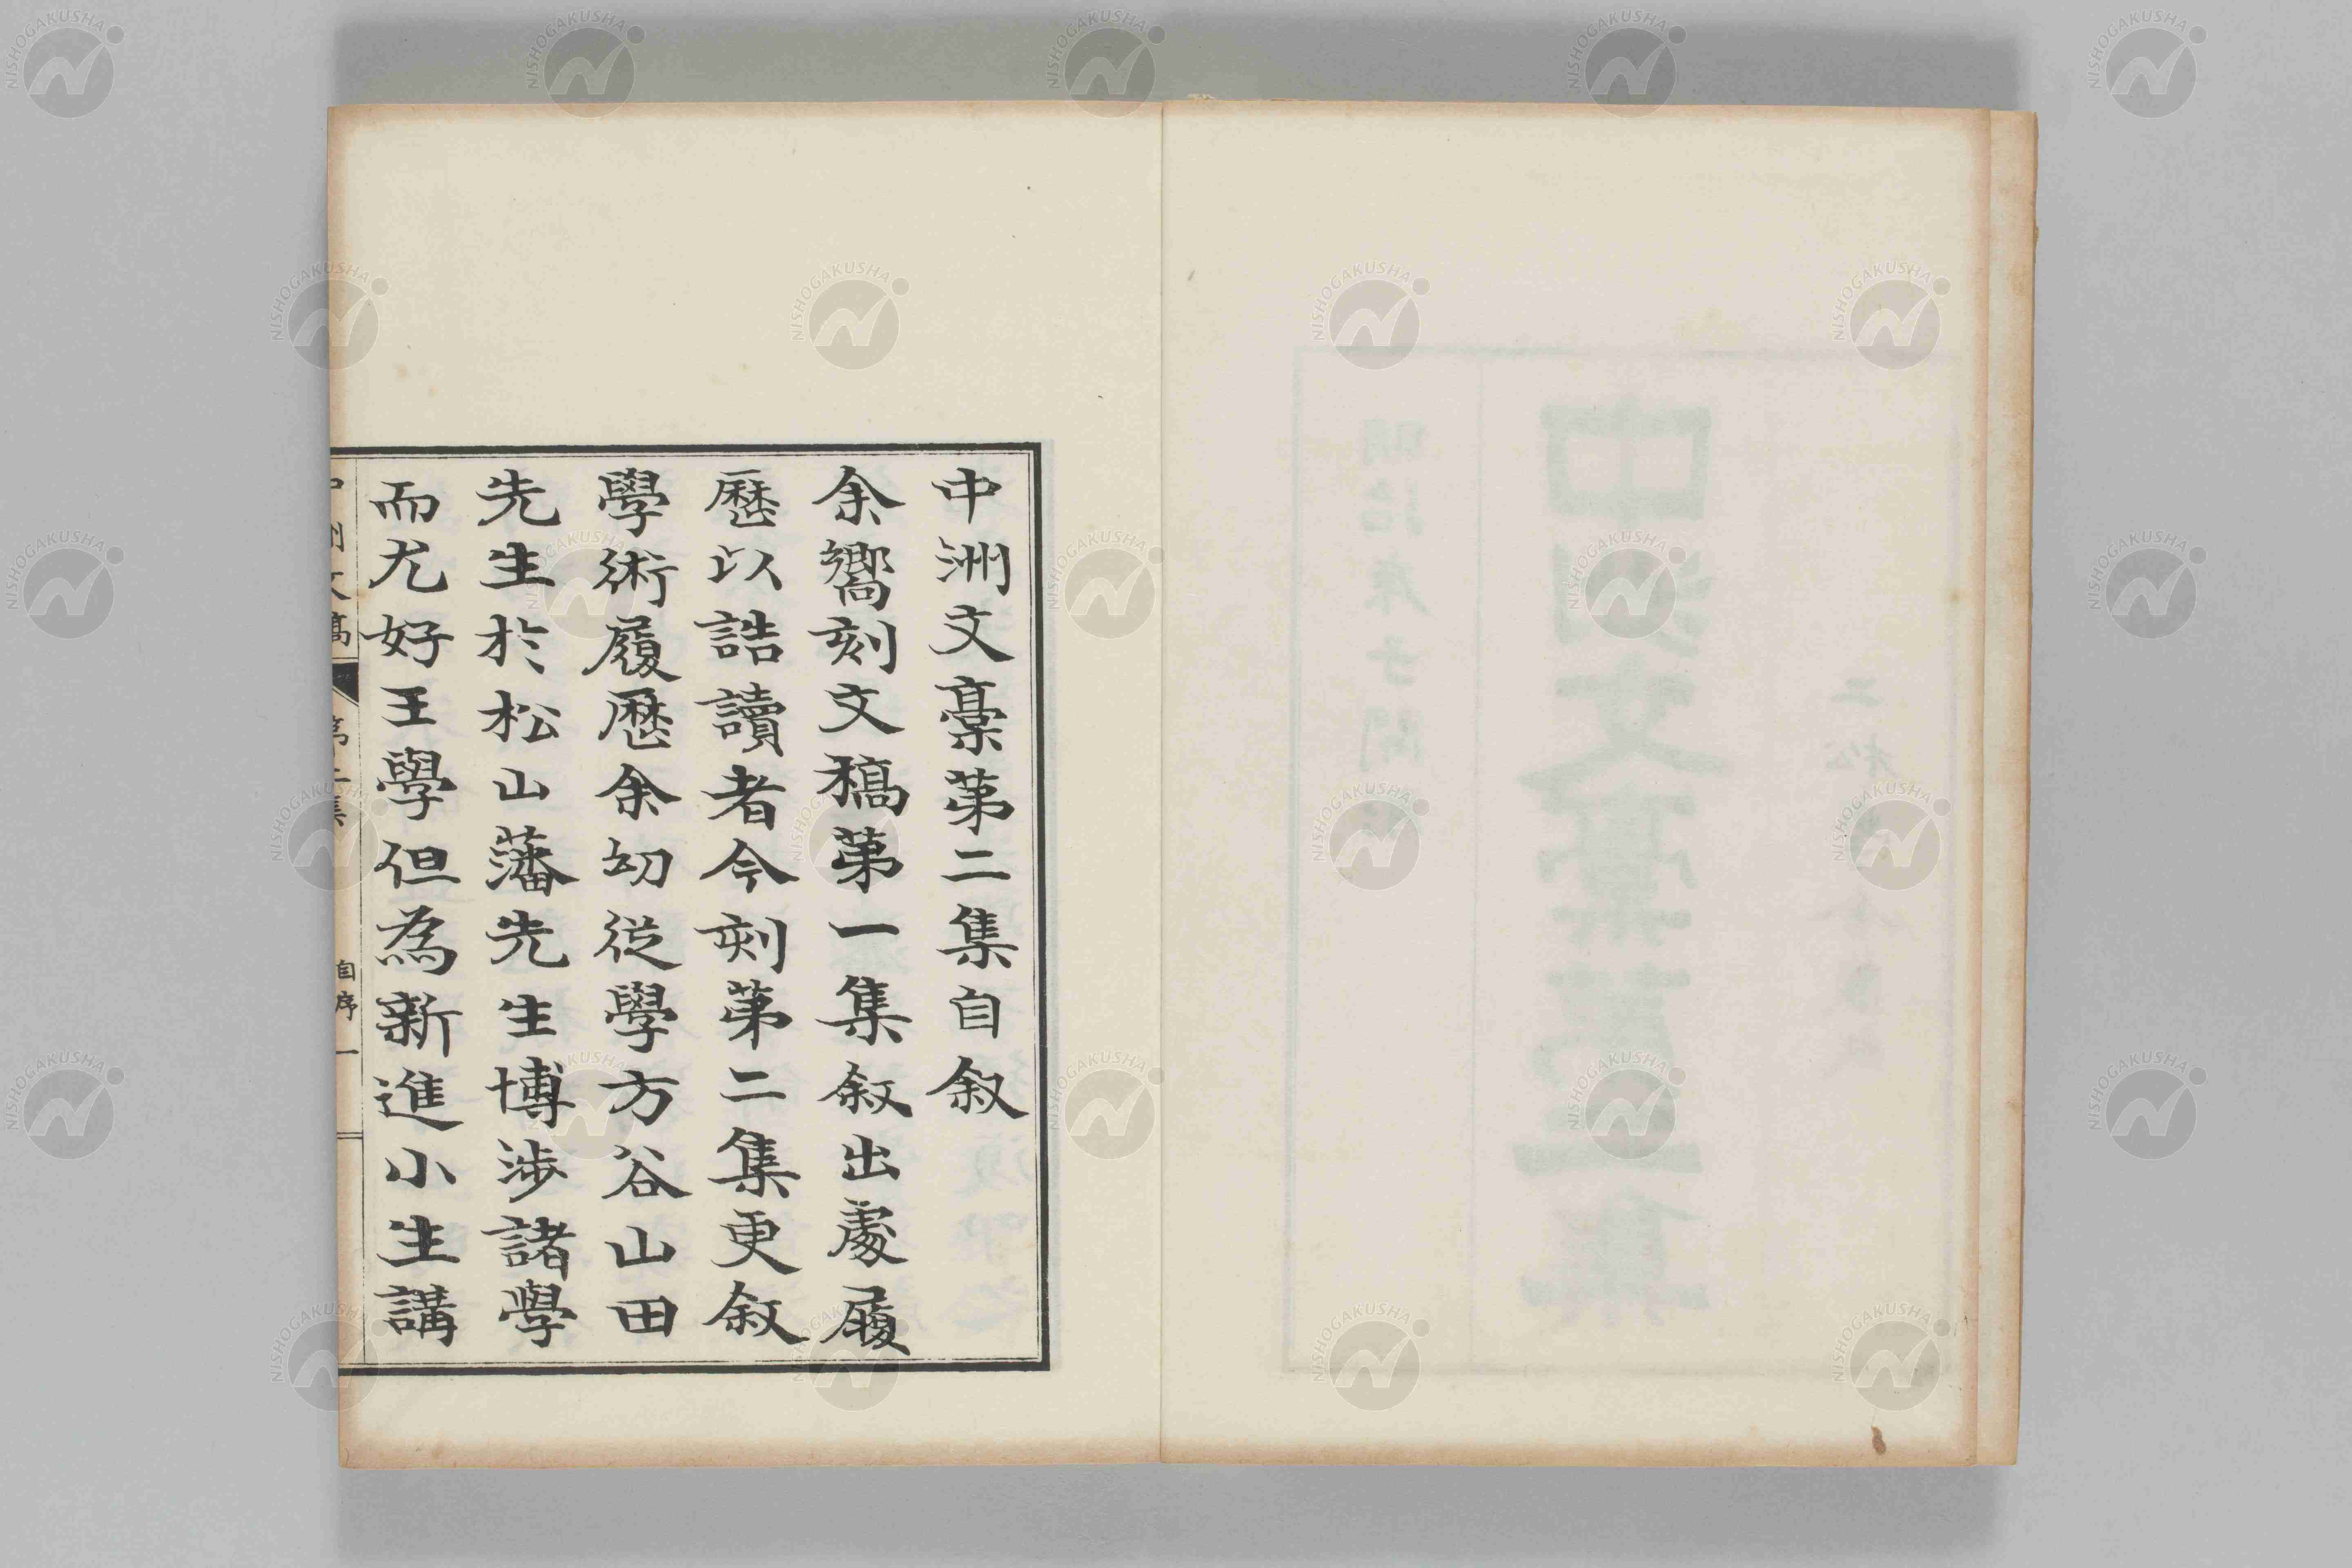 中洲文稾第二集自敘
余嚮刻文稿第一集敘出處履
歷以誥讀者今刻第二集更敘
學術履歷余幼從學方谷山田
先生於松山藩先生博涉諸學
而尤好王學但為新進小生講
自序 一
NISHOGAKUSHA